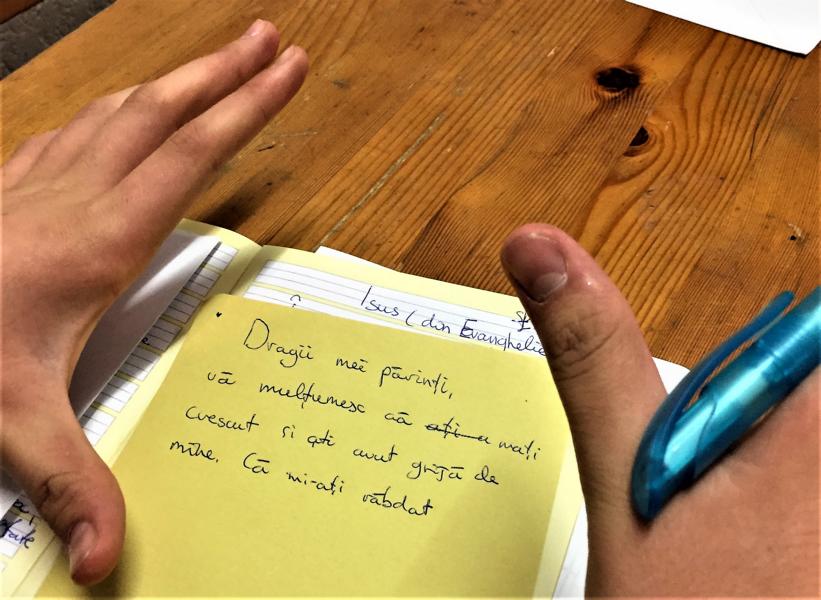 Isus (din Evanghelie
Dragii mei părinți,
vă mulțumesc că ați a mați
crescut si ați avut grijă de
mine. Că mi-ați răbdat